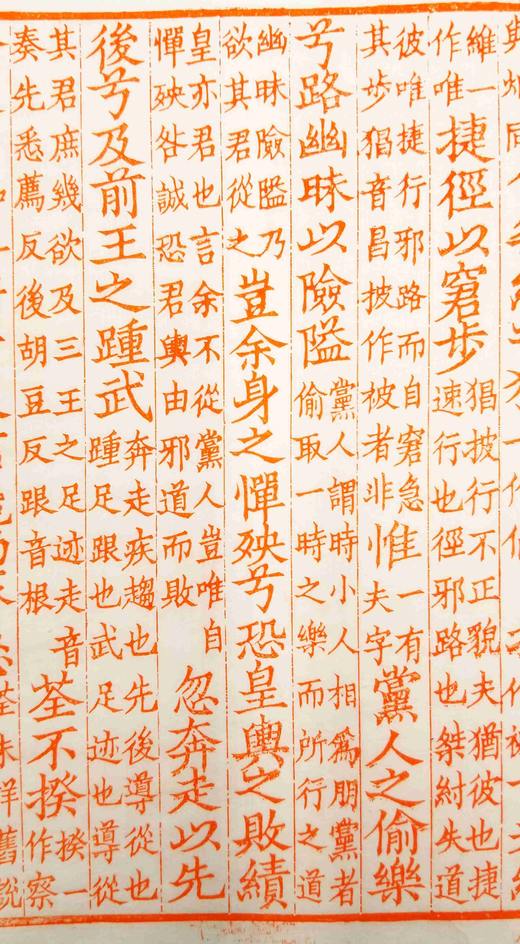 維一作唯捷徑以窘步猖披行不正貌夫猶彼也捷速行也徑邪路也桀紂失道
彼唯捷行邪路而自窘急其步猖音昌披作被者非惟一有夫字黨人之偷樂
兮路幽昧以險隘黨人謂時小人相爲朋黨者偷取一時之樂而所行之道
幽昧險隘乃欲其君從之豈余身之憚殃兮恐皇輿之敗績
皇亦君也言余不從黨人豈唯自憚殃咎誠恐君輿由邪道而敗忽奔走以先
後兮及前王之踵武奔走疾趨也先後導從也踵足跟也武足迹也導從
其君庶幾欲及三王之足迹走音奏先悉薦反後胡豆反跟音根荃不揆揆一作察